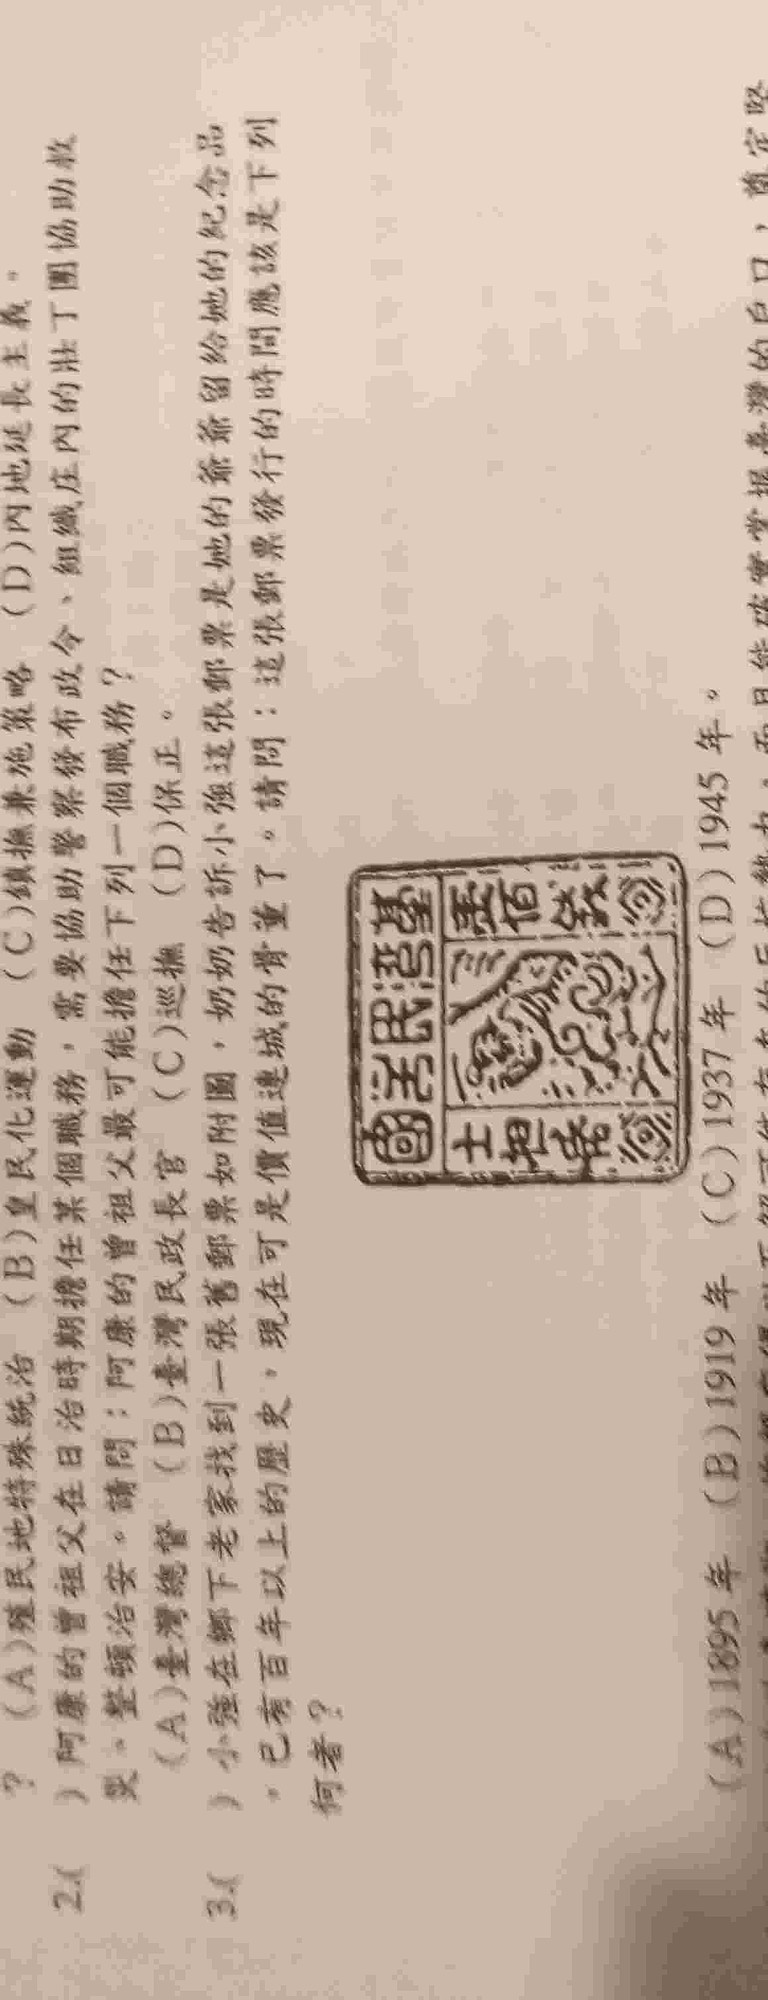 ？ (A)殖民地特殊統治 (B)皇民化運動 (C)鎮撫兼施策略 (D)內地延長主義。
2.( )阿康的曾祖父在日治時期擔任某個職務，需要協助警察發布政令、組織庄內的壯丁團協助救
災、整頓治安。請問：阿康的曾祖父最可能擔任下列一個職務？
(A)臺灣總督 (B)臺灣民政長官 (C)巡撫 (D)保正。
3.( )小強在鄉下老家找到一張舊郵票如附圖，奶奶告訴小強這張郵票是她的爺爺留給她的紀念品
，已有百年以上的歷史，現在可是價值連城的骨董了。請問：這張郵票發行的時間應該是下列
何者？
臺灣民主國
士担帋
(A)1895年 (B)1919年 (C)1937年 (D)1945年。